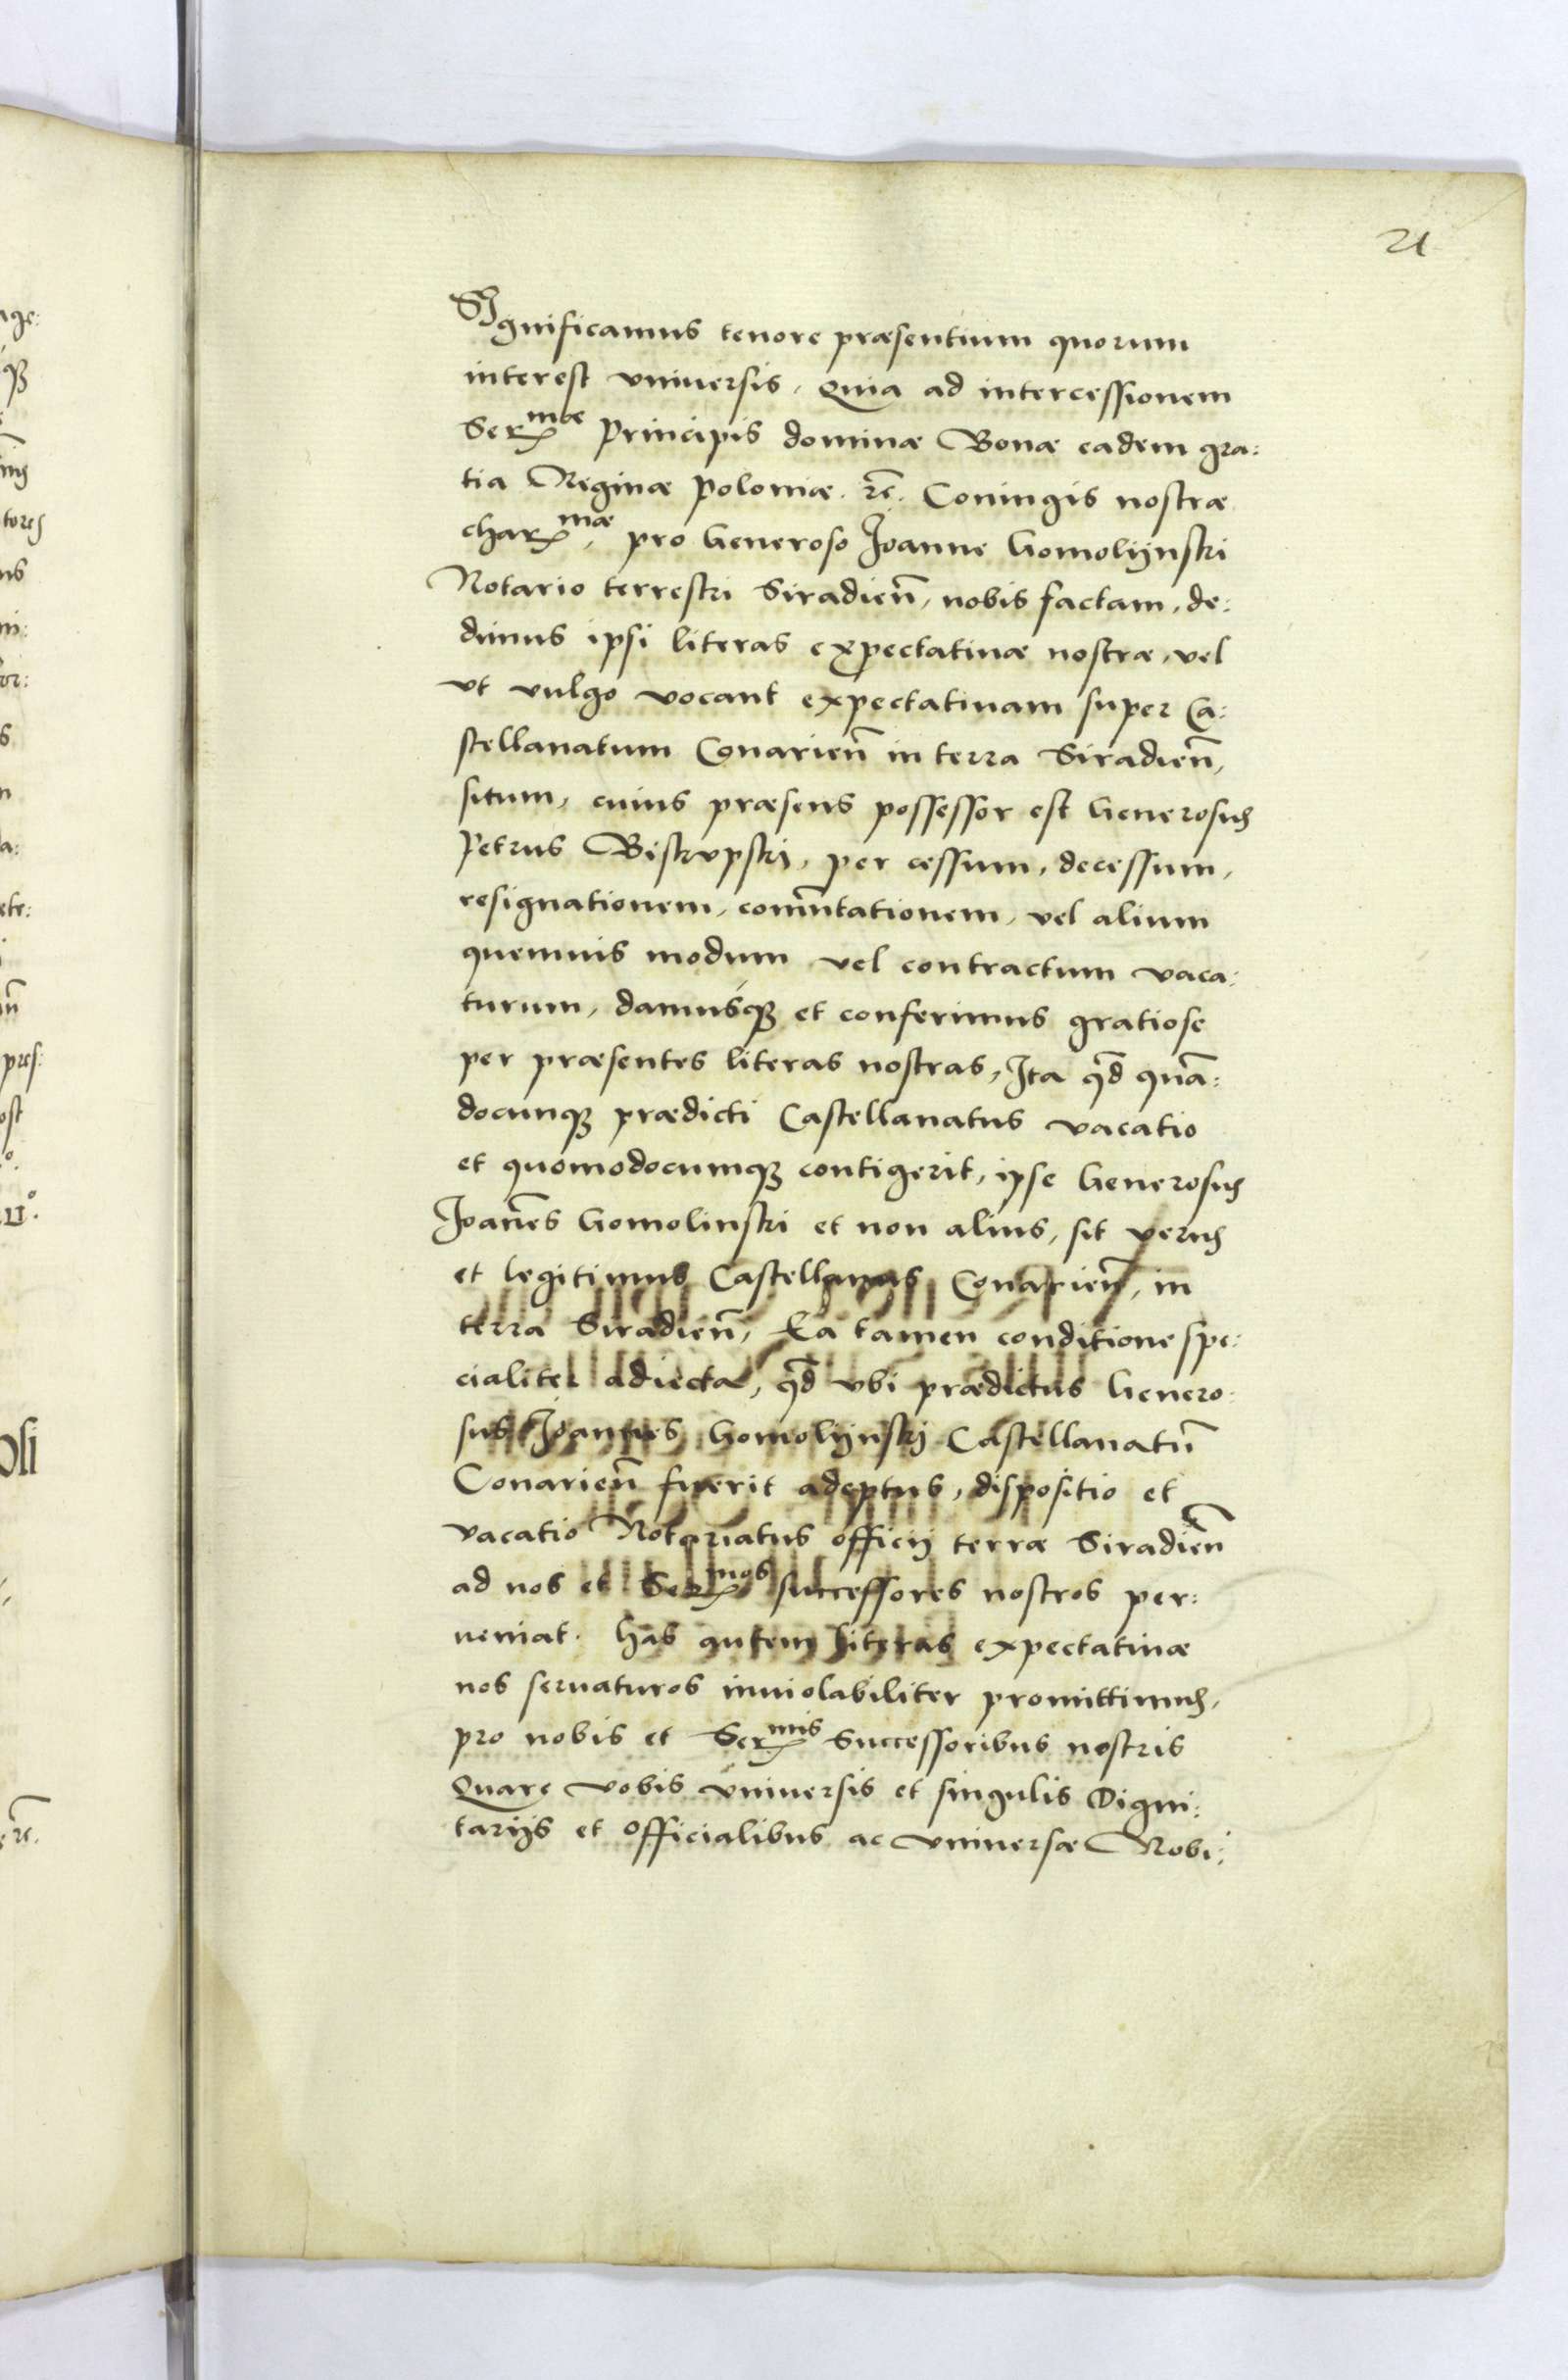 21
Significamus tenore præsentium quorum
interest vniuersis, Quia ad intercessionem
Sermæ Principis dominæ Bonæ eadem gra:
tia Reginæ Poloniæ. rc̃. Coniugis nostræ
charmæ, pro Generoso Joanne Gomolijnski
Notario terrestri Siradien̄, nobis factam, de:
dimus ipsi literas expectatiuæ nostræ, vel
vt vulgo vocant expectatiuam super Ca:
stellanatum Conarien̄ in terra Siradien̄,
situm, cuius præsens possessor est Generosus
Petrus Biskvpski, per cessum, decessum,
resignationem, com̄utationem, vel alium
quemuis modum vel contractum vaca:
turum, damusq; et conferimus gratiose
per præsentes literas nostras, Ita qd̄ quā:
docunq; prædicti Castellanatus vacatio
et quomodocumq; contigerit, ipse Generosus
Joan̄es Gomolinski et non alius, sit verus
et legitimus Castellanus Conarien̄, in
terra Siradien̄, Ea tamen conditione spe:
cialiter adiecta, qd̄ vbi prædictus Genero:
sus Joannes Gomolijnskj Castellanatū
Conarien̄ fuerit adeptus, dispositio et
vacatio Notariatus officij terræ Siradien̄
ad nos et Sermos successores nostros per:
ueniat. Has autem literas expectatiuæ
nos seruaturos inuiolabiliter promittimus,
pro nobis et Sermis Successoribus nostris
Quare vobis vniuersis et singulis Digni:
tarijs et Officialibus ac vniuersæ Nobi: